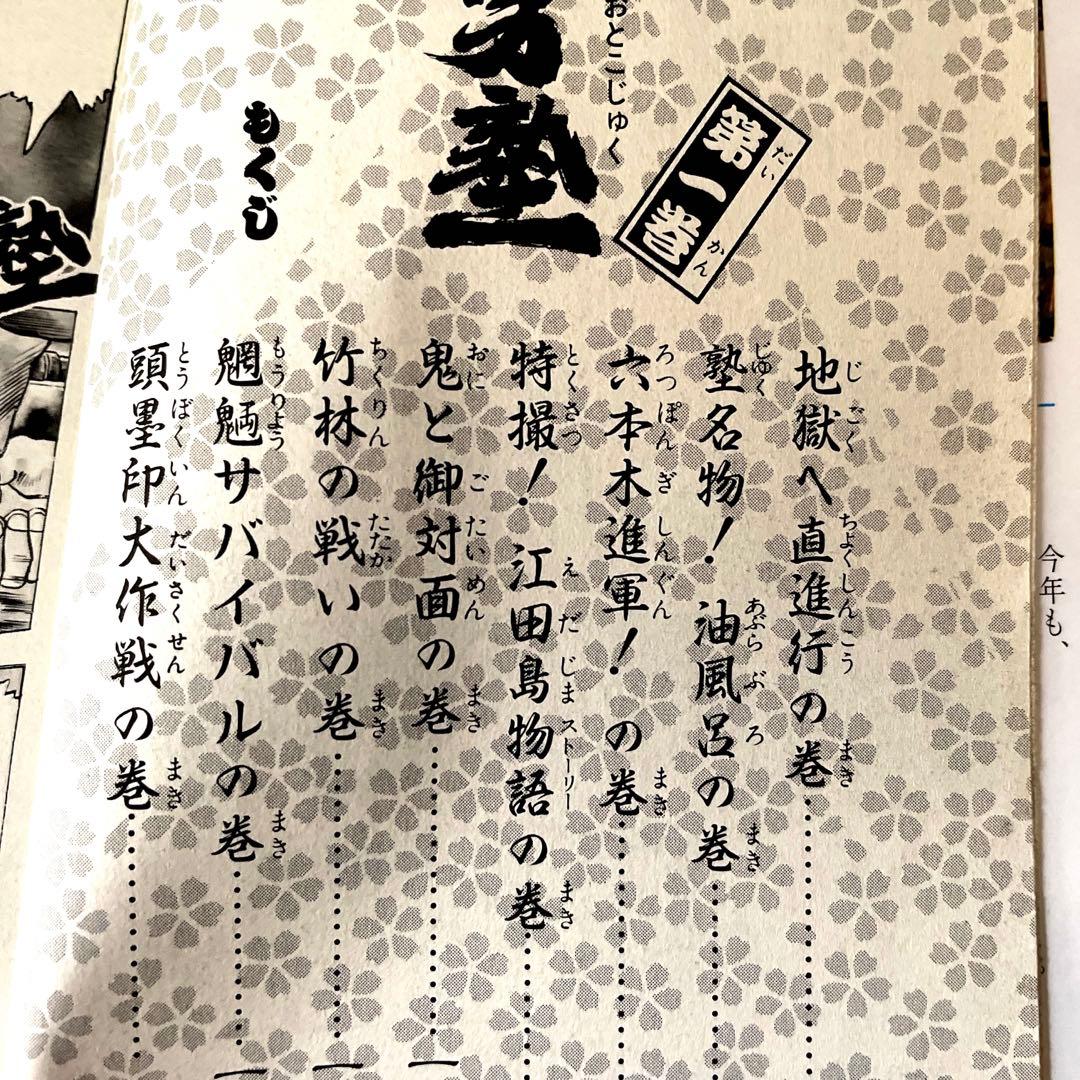 男塾
おとこじゅく
第一巻
だいかん
もくじ
地獄へ直進行の巻
じごく ちょくしんこう まき
塾名物！ 油風呂の巻
じゅく あぶらぶろ まき
六本木進軍！の巻
ろつぽんぎしんぐん まき
特撮！ 江田島物語の巻
とくさつ えだじまストーリー まき
鬼と御対面の巻
おに ごたいめん まき
竹林の戦いの巻
ちくりん たたか まき
魍魎サバイバルの巻
もうりよう まき
頭墨印大作戦の巻
とうぼくいんだいさくせん まき
塾
今年も、